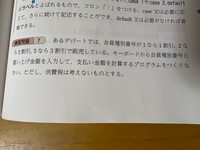 ラベルとよばれるもので，コロン（：）をつける．case 文は必要に応じて，さらに続けて記述することができ，default 文は必要がなければ省略できる．
7　あるデパートでは，会員種別番号が1なら1割引，2なら2割引，3なら3割引で販売している．キーボードから会員種別番号と
買い上げ金額を入力して，支払い金額を計算するプログラムをつくりなさい．ただし，消費税は考えないものとする．